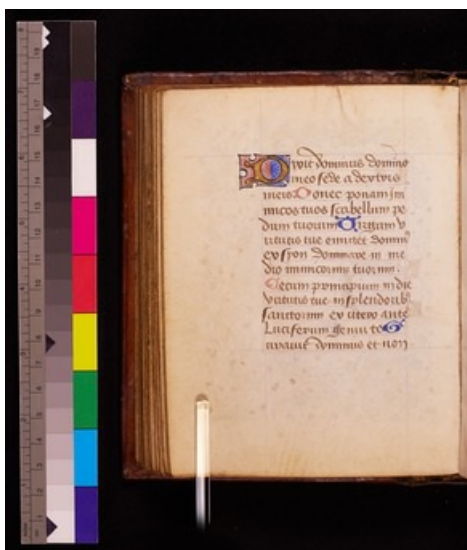 Dixit dominus domino
meo sede a dextris
meis Donec ponam in
micos tuos scabellum pe
dum tuorum Virgam v
irtutis tue emittet domin
ex syon dominare in me
dio inimicorum tuorum.
Tecum principium in die
virtutis tue in splendorib
sanctorum ex utero ante
Luciferum genui te
iuravit dominus et non